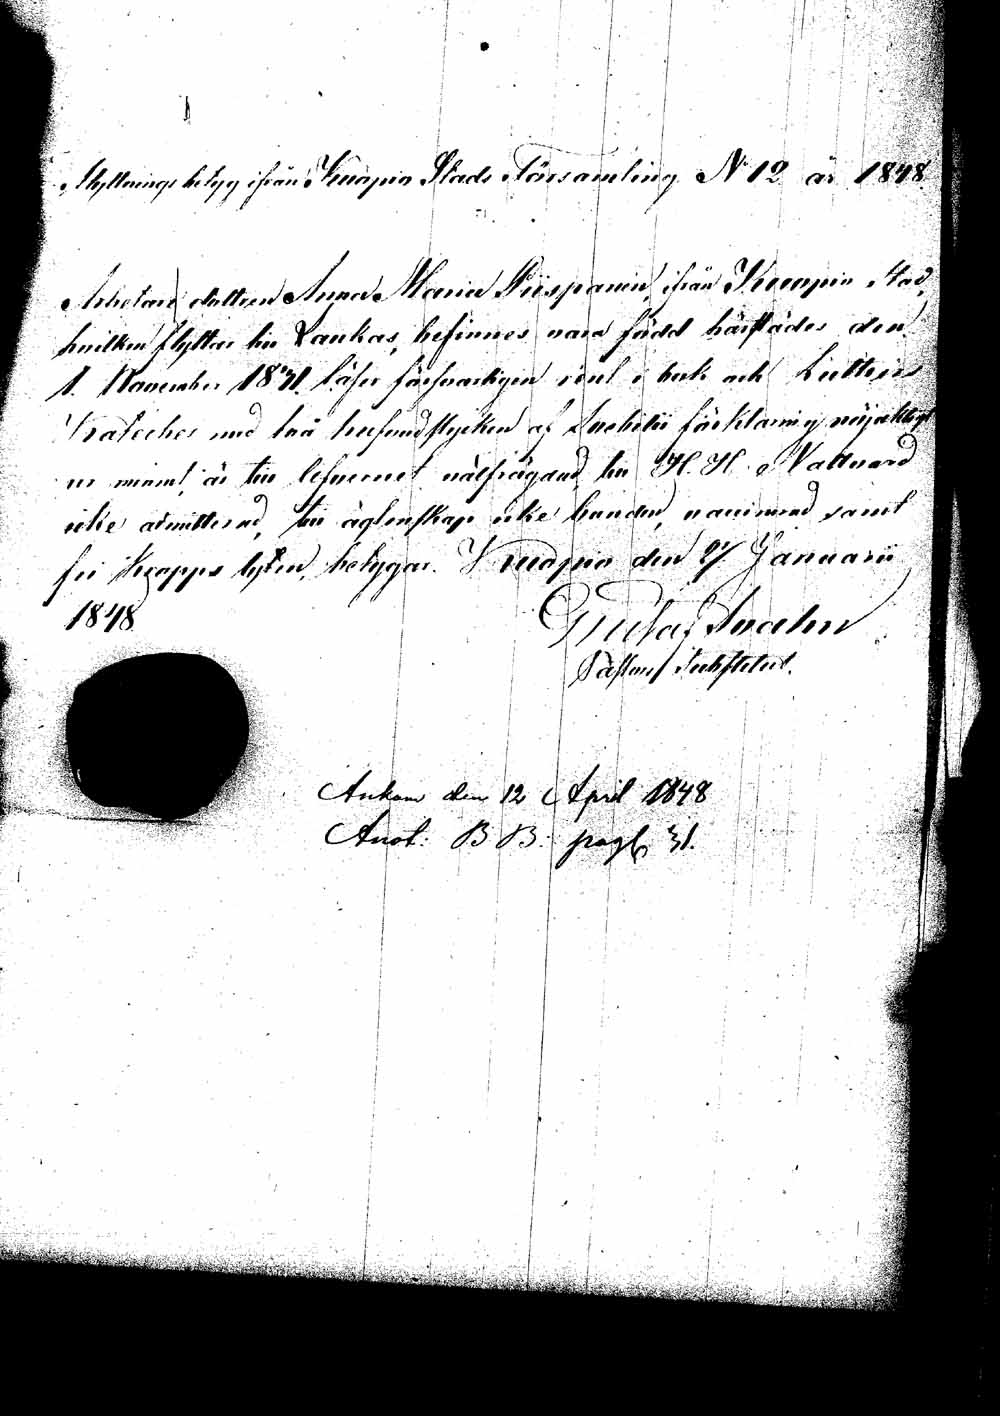 Flyttnings betyg ifrån Kuopio Stads Församling N 12 år 1848
Arbetare dottren Anna Maria Piispanen, ifrån Kuopio Stad,
hvilken flyttar till Laukas, befinnes vara född härstädes den
1. November 1831. läser försvarligen rent i bok och Lutheri
Kateches med två hufvudstycken af Svebelii förklaring nöjaktigt
ur minnet, är till lefvernet välfrägdad, till H. H. Nattvard
icke admitterad, till ägtenskap icke bunden, vaccinerad samt
fri kropps lyten, betygar. Kuopio den 21 Januarii
1848.
Gustaf
Pastors Substitut.
Ankom den 12 April 1848
Anot: B B: pag 31.